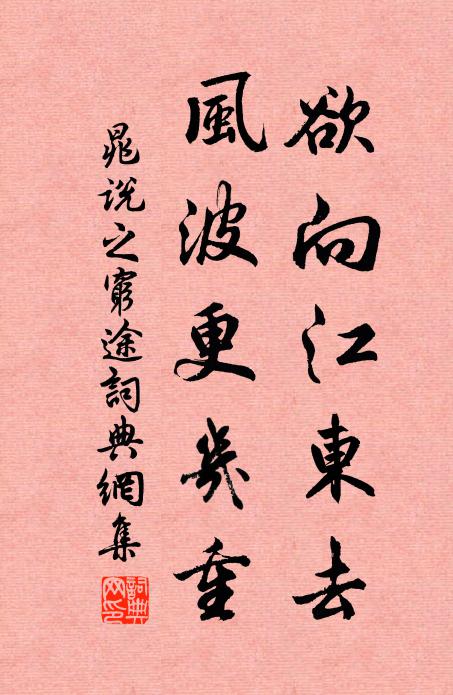 欲向江東去
風波更幾重
晁說之窮途詞典網集
詞典網印